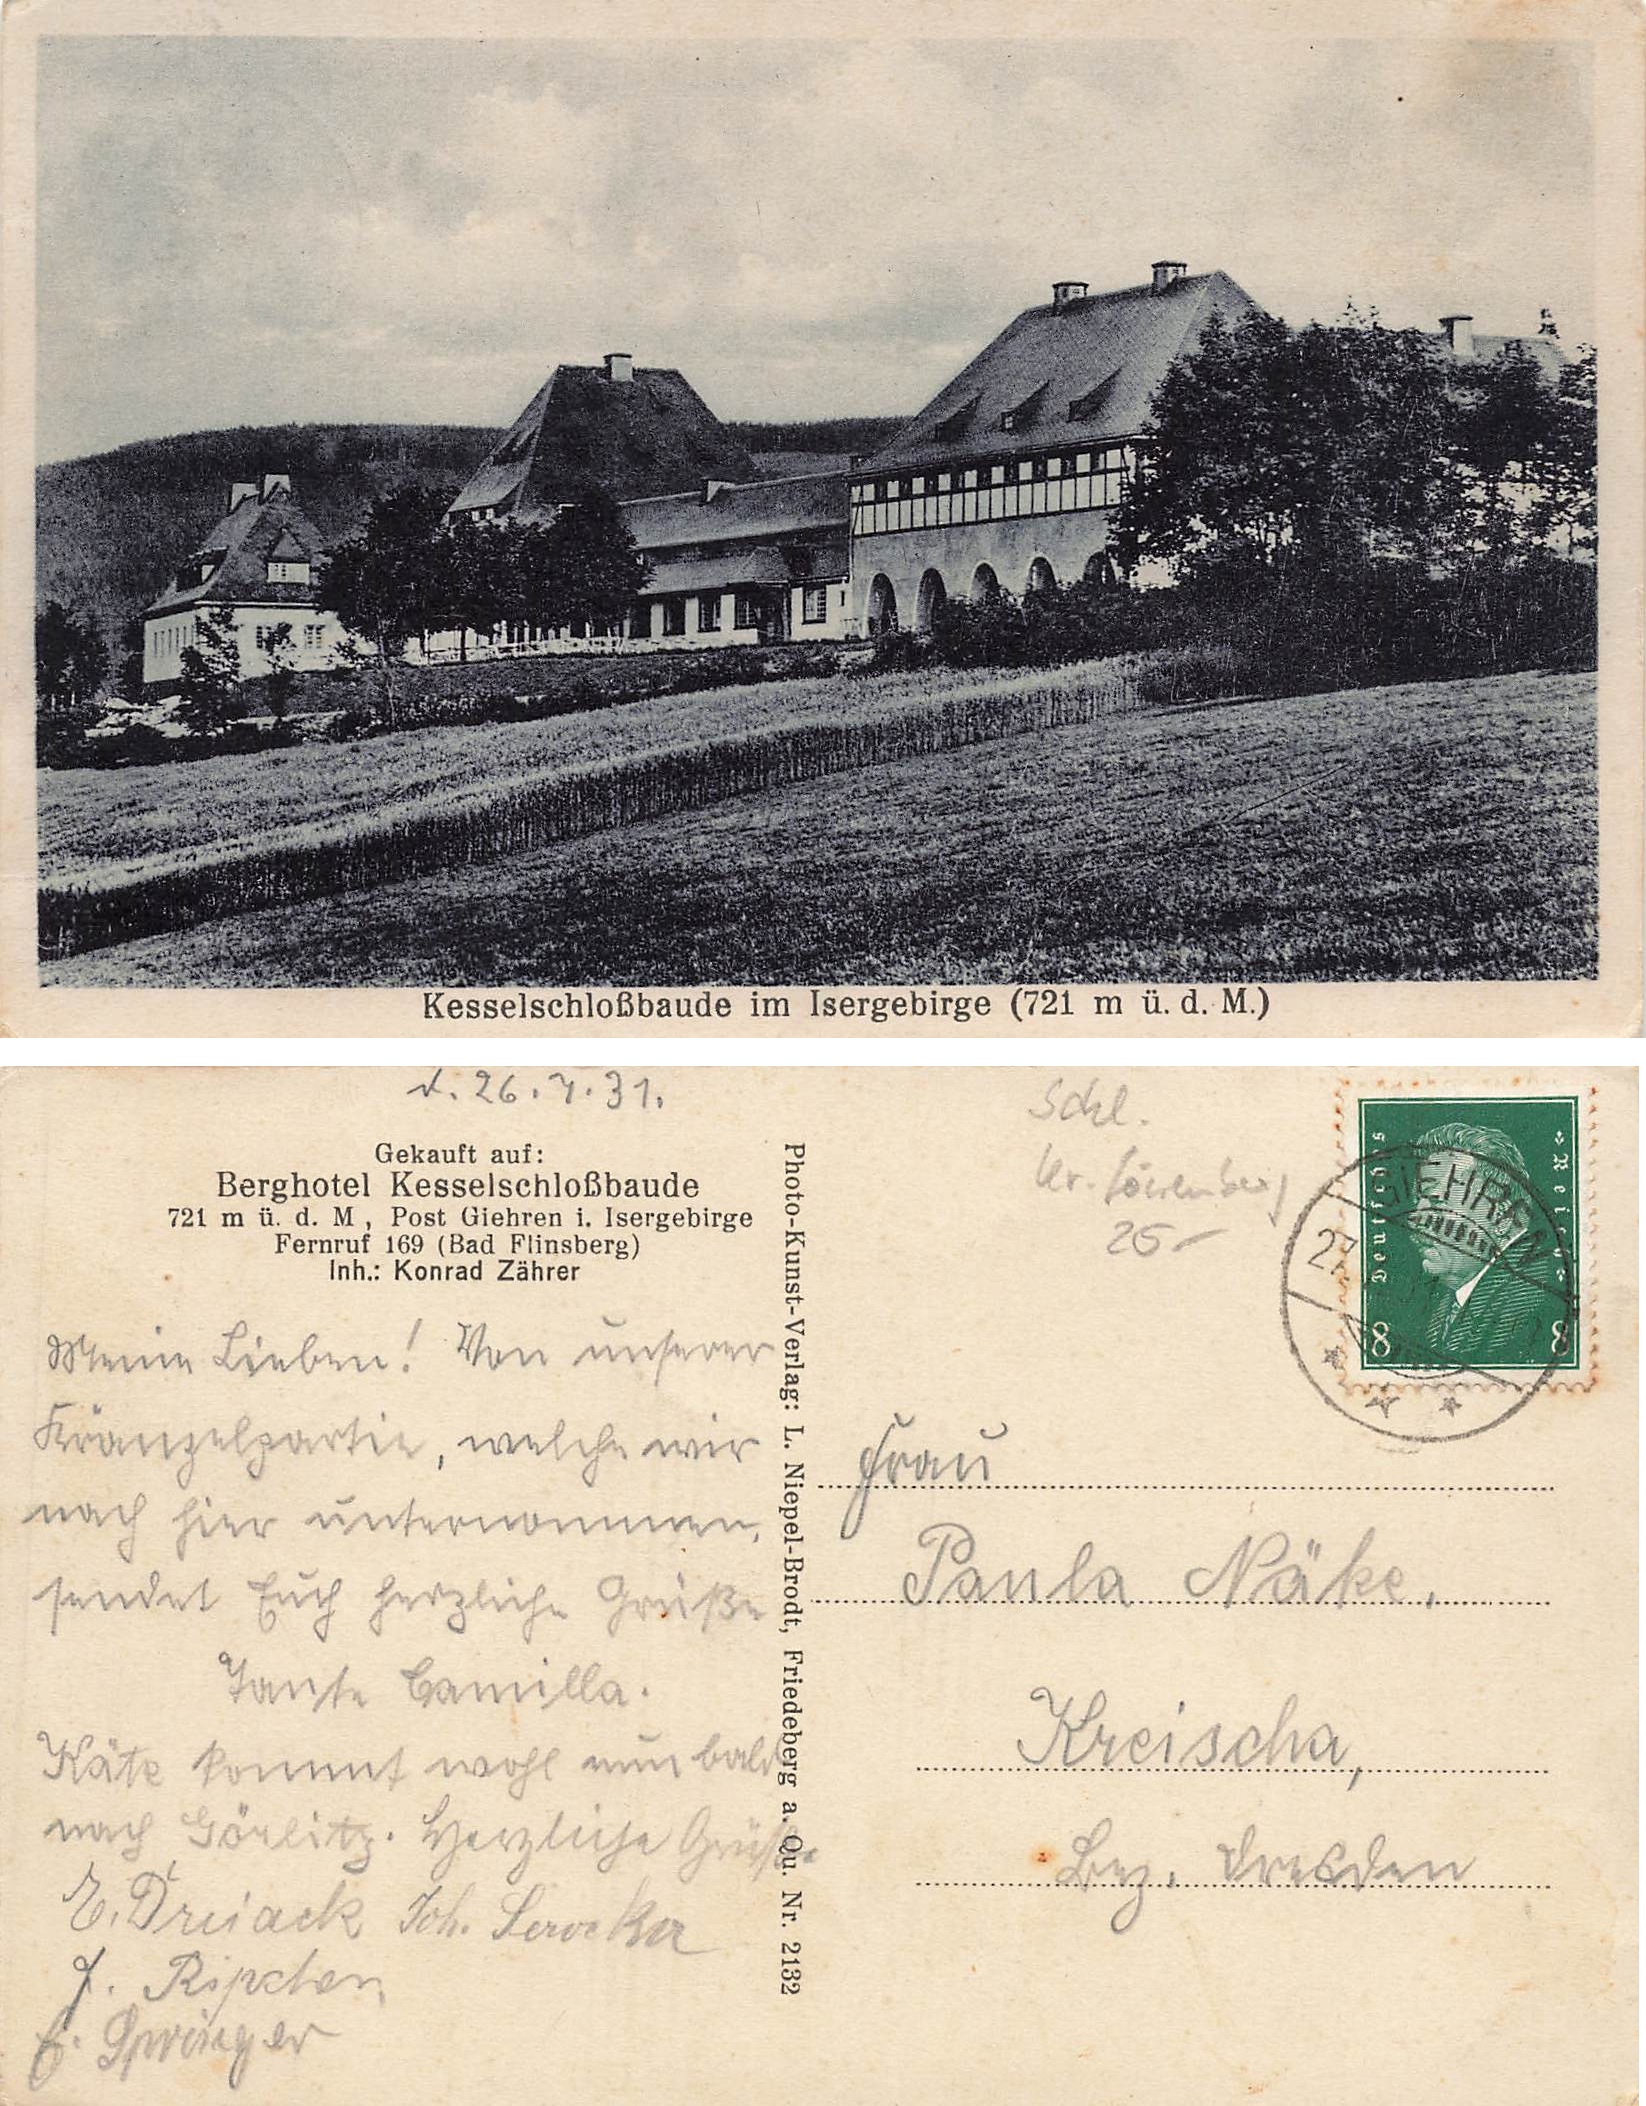 Kesselschloßbaude im Isergebirge (721 m ü. d. M.)
d. 26.7.31.
Gekauft auf:
Berghotel Kesselschloßbaude
721 m ü. d. M , Post Giehren i. Isergebirge
Fernruf 169 (Bad Flinsberg)
Inh.: Konrad Zährer
Meine Lieben! Von unserer
Kränzelpartie, welche wir
nach hier unternommen,
sendet Euch herzliche Grüße
Tante Camilla.
Käte kommt wohl nun bald
nach Görlitz. Herzliche Grüße
E. Dreiack Joh.
J.
E. Springer
Photo-Kunst-Verlag: L. Niepel-Brodt, Friedeberg a. Qu. Nr. 2132
Schl.
Kr. Löwenberg
25-
Deutsches Reich
8 8
GIEHREN
27.
Frau
Paula Näke,
Kreischa,
Bez. Dresden